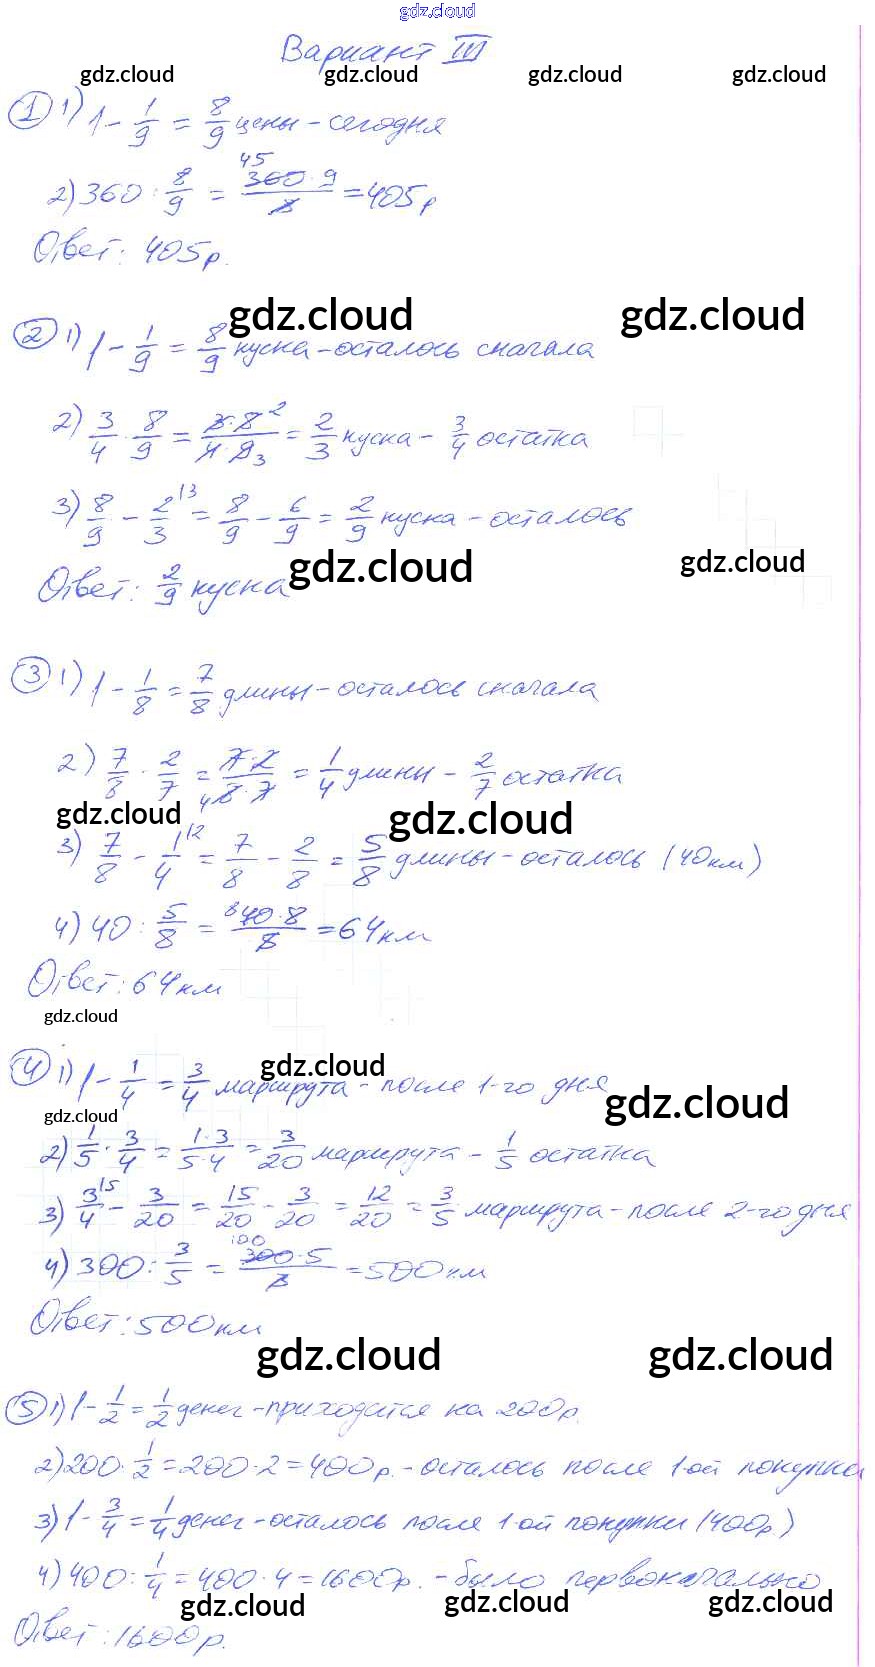 gdz.cloud
Вариант III
gdz.cloud gdz.cloud gdz.cloud gdz.cloud
① 1) 1 - 1/9 = 8/9 цены - сегодня
2) 360 : 8/9 = 360·9/8 = 405 р (45)
Ответ: 405 р.
gdz.cloud gdz.cloud
② 1) 1 - 1/9 = 8/9 куска - осталось сначала
2) 3/4 · 8/9 = 3·8/4·9 = 2/3 куска - 3/4 остатка (2, 3)
3) 8/9 - 2/3 \3 = 8/9 - 6/9 = 2/9 куска - осталось
gdz.cloud gdz.cloud
Ответ: 2/9 куска
③ 1) 1 - 1/8 = 7/8 длины - осталось сначала
2) 7/8 · 2/7 = 7·2/8·7 = 1/4 длины - 2/7 остатка (4)
gdz.cloud gdz.cloud
3) 7/8 - 1/4 \2 = 7/8 - 2/8 = 5/8 длины - осталось (40 км)
4) 40 : 5/8 = 40·8/5 = 64 км (8)
Ответ: 64 км
gdz.cloud
gdz.cloud
④ 1) 1 - 1/4 = 3/4 маршрута - после 1-го дня
gdz.cloud gdz.cloud
2) 1/5 · 3/4 = 1·3/5·4 = 3/20 маршрута - 1/5 остатка
3) 3/4 \5 - 3/20 = 15/20 - 3/20 = 12/20 = 3/5 маршрута - после 2-го дня
4) 300 : 3/5 = 300·5/3 = 500 км (100)
Ответ: 500 км
gdz.cloud gdz.cloud
⑤ 1) 1 - 1/2 = 1/2 денег - приходится на 200 р.
2) 200 · 1/2 = 200 · 2 = 400 р. - осталось после 1-ой покупки
3) 1 - 3/4 = 1/4 денег - осталось после 1-ой покупки (400 р.)
4) 400 : 1/4 = 400 · 4 = 1600 р. - было первоначально
gdz.cloud gdz.cloud gdz.cloud
Ответ: 1600 р.